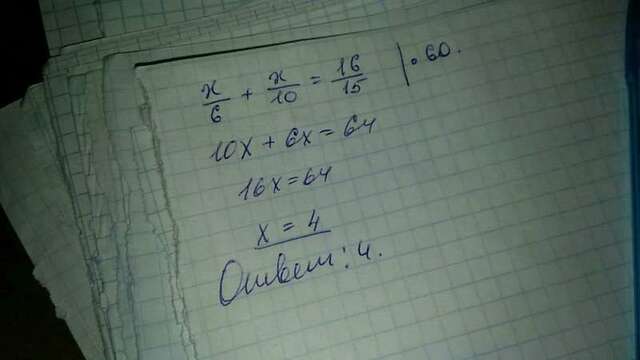 x/6 + x/10 = 16/15 | · 60.
10x + 6x = 64
16x = 64
x = 4
Ответ: 4.